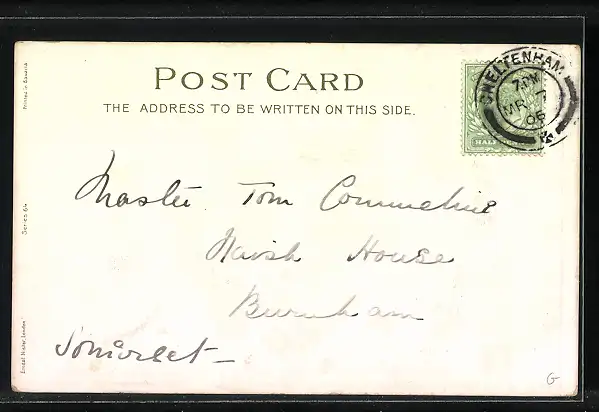 POST CARD
THE ADDRESS TO BE WRITTEN ON THIS SIDE.
CHELTENHAM
MR 7
06
HALF
Master Tom
House
Burnham
Somerset
Series 64
Printed in Bavaria
Ernest Nister, London
G